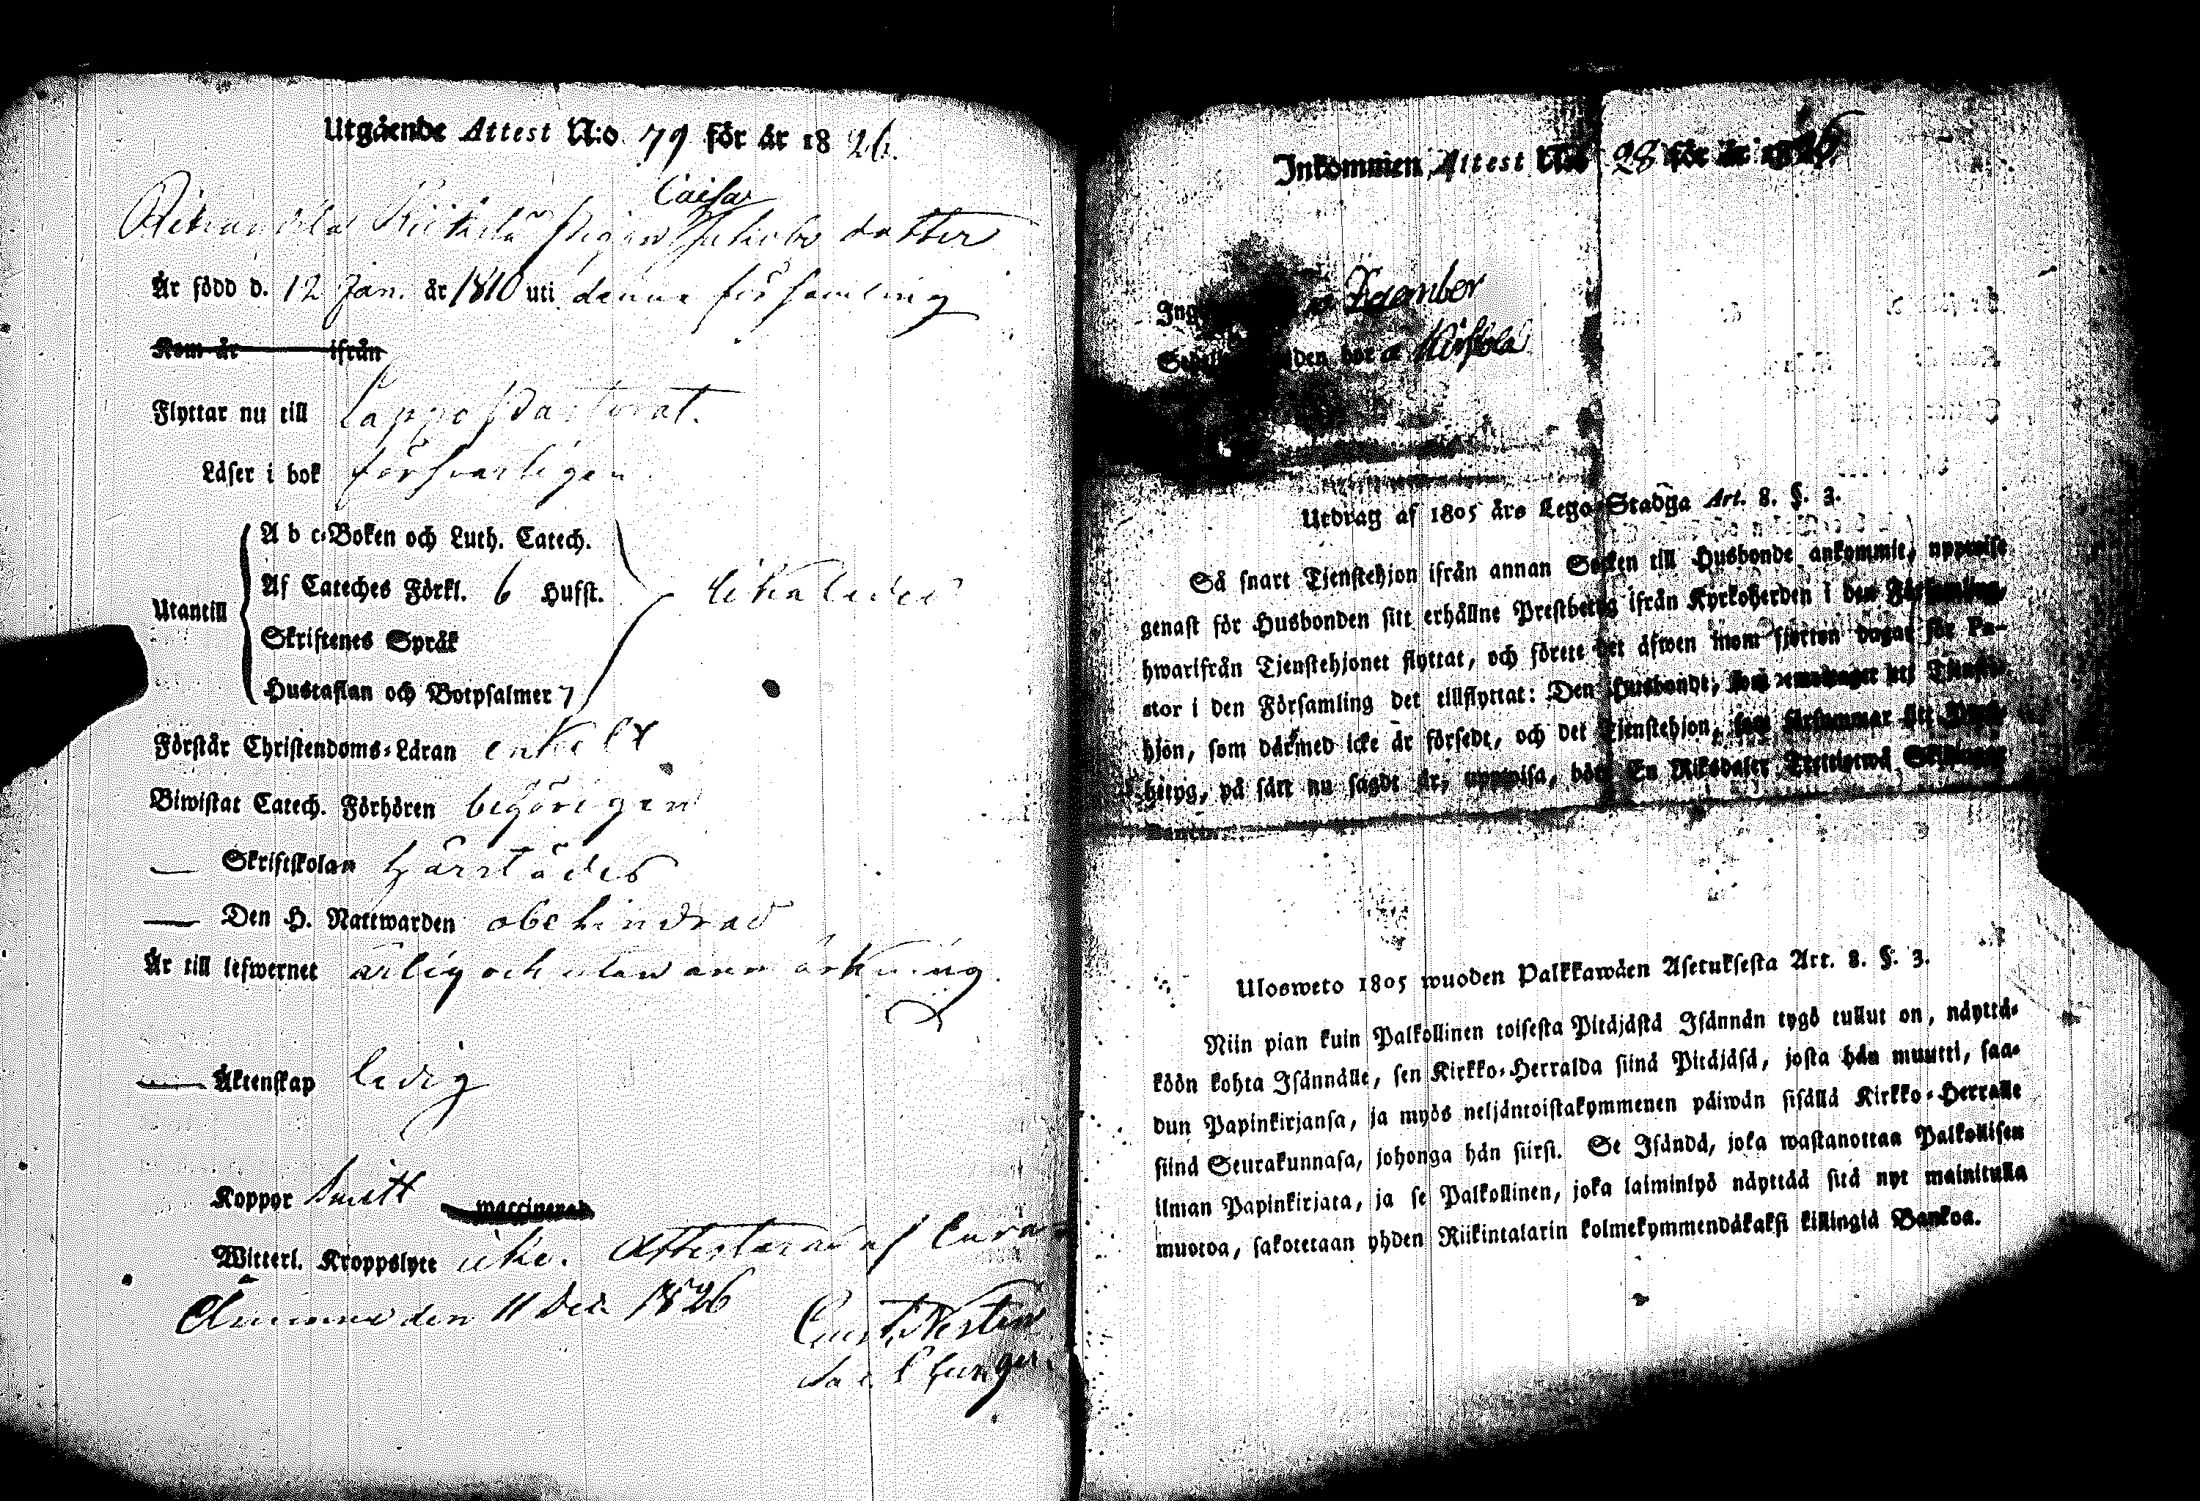 Utgående Attest N:o 79 för år 1826.
Caisa
pigan Jakobs dotter
Är född d. 12 Jan. år 1810 uti denna församling
Kom år ifrån
Flyttar nu till Lappo Pastorat.
Läser i bok försvarligen
Utantill
A b c-Boken och Luth. Catech.
Af Cateches Förkl. 6 Hufst. likaledes
Skriftenes Språk
Hustaflan och Botpsalmer 7
Förstår Christendoms-Läran enkelt
Biwistat Catech. Förhören behörigen
— Skriftskolan härstädes
— Den H. Nattwarden obehindrad
Är till lefwernet ärlig och utan anmärkning
— Äktenskap ledig
Koppor haft waccinerad
Witterl. Kroppslyte icke. Attesterar af
den 11 Dec 1826
Inkommen Attest N:o 28 för år 1826
December
Utdrag af 1805 års Lego-Stadga Art. 8. §. 3.
Så snart Tjenstehjon ifrån annan Socken till Husbonde ankommit, uppwise
genast för Husbonden sitt erhållne Prestbetyg ifrån Kyrkoherden i den Församling,
hwarifrån Tjenstehjonet flyttat, och förete det äfwen inom fjorton dagar för Pa-
stor i den Församling det tillflyttat: Den Husbonde, som emottager ett Tjenste-
hjon, som därmed icke är försedt, och det Tjenstehjon, som försummar sitt Prest-
betyg, på sätt nu sagdt är, uppwisa, böte En Riksdaler Trettiotwå Skillingar
Banco.
Ulosweto 1805 wuoden Palkkawäen Asetuksesta Art. 8. §. 3.
Niin pian kuin Palkollinen toisesta Pitäjästä Isännän tygö tullut on, näyttä-
köön kohta Isännälle, sen Kirkko-Herralda siinä Pitäjäsä, josta hän muutti, saa-
dun Papinkirjansa, ja myös neljäntoistakymmenen päiwän sisällä Kirkko-Herralle
siinä Seurakunnasa, johonga hän siirsi. Se Isändä, joka wastanottaa Palkollisen
ilman Papinkirjata, ja se Palkollinen, joka laiminlyö näyttää sitä nyt mainitulla
muotoa, sakotetaan yhden Riikintalarin kolmekymmendäkaksi killingiä Bankoa.